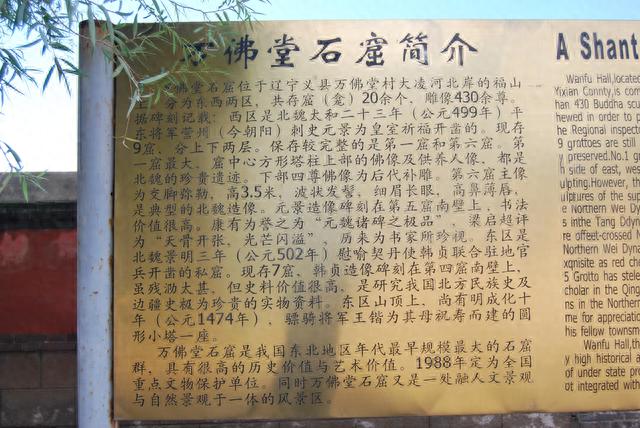 万佛堂石窟简介
万佛堂石窟位于辽宁义县万佛堂村大凌河北岸的福山
上，分为东西两区，共存窟（龛）20余个，雕像430余尊。
据碑刻记载：西区是北魏太和二十三年（公元499年）平
东将军营州（今朝阳）刺史元景为皇室祈福开凿的。现存
9窟，分上下两层。保存较完整的是第一窟和第六窟。第
一窟最大，窟中心方形塔柱上部的佛像及供养人像，都是
北魏的珍贵遗迹。下部四尊佛像为后代补雕。第六窟主像
为交脚弥勒，高3.5米，波状发髻，细眉长眼，高鼻薄唇，
是典型的北魏造像。元景造像碑刻在第五窟南壁上，书法
价值很高。康有为誉之为“元魏诸碑之极品”，梁启超评
为“天骨开张，光芒闪溢”，历来为书家所珍视。东区是
北魏景明三年（公元502年）慰喻契丹使韩贞联合驻地官
兵开凿的私窟。现存7窟，韩贞造像碑刻在第四窟南壁上，
虽残泐太甚，但史料价值很高，是研究我国北方民族史及
边疆史极为珍贵的实物资料。东区山顶上，尚有明成化十
年（公元1474年），骠骑将军王锴为其母祝寿而建的圆
形小塔一座。
万佛堂石窟是我国东北地区年代最早规模最大的石窟
群，具有很高的历史价值与艺术价值。1988年定为全国
重点文物保护单位。同时万佛堂石窟又是一处融人文景观
与自然景观于一体的风景区。
A Shant
Wanfu Hall,locate
Yixian Connty,is com
han 430 Buddha scu
hewed in order to p
he Regional inspect
9 grottoes are still
y preserved.No.1 g
h side of east, wes
ulpting.However, th
ulptures of the sup
e Northern Wei Dy
s inthe Tang Ddyn
re offeet-crossed M
e Northern Wei Dy
xqnisite as red che
5 Grotto has stele
cholar in the Qing
ns in the Northern
me for appreciatio
his fellow townsm
Wanfu Hall,th
y high historical a
of under state pro
ot integrated with